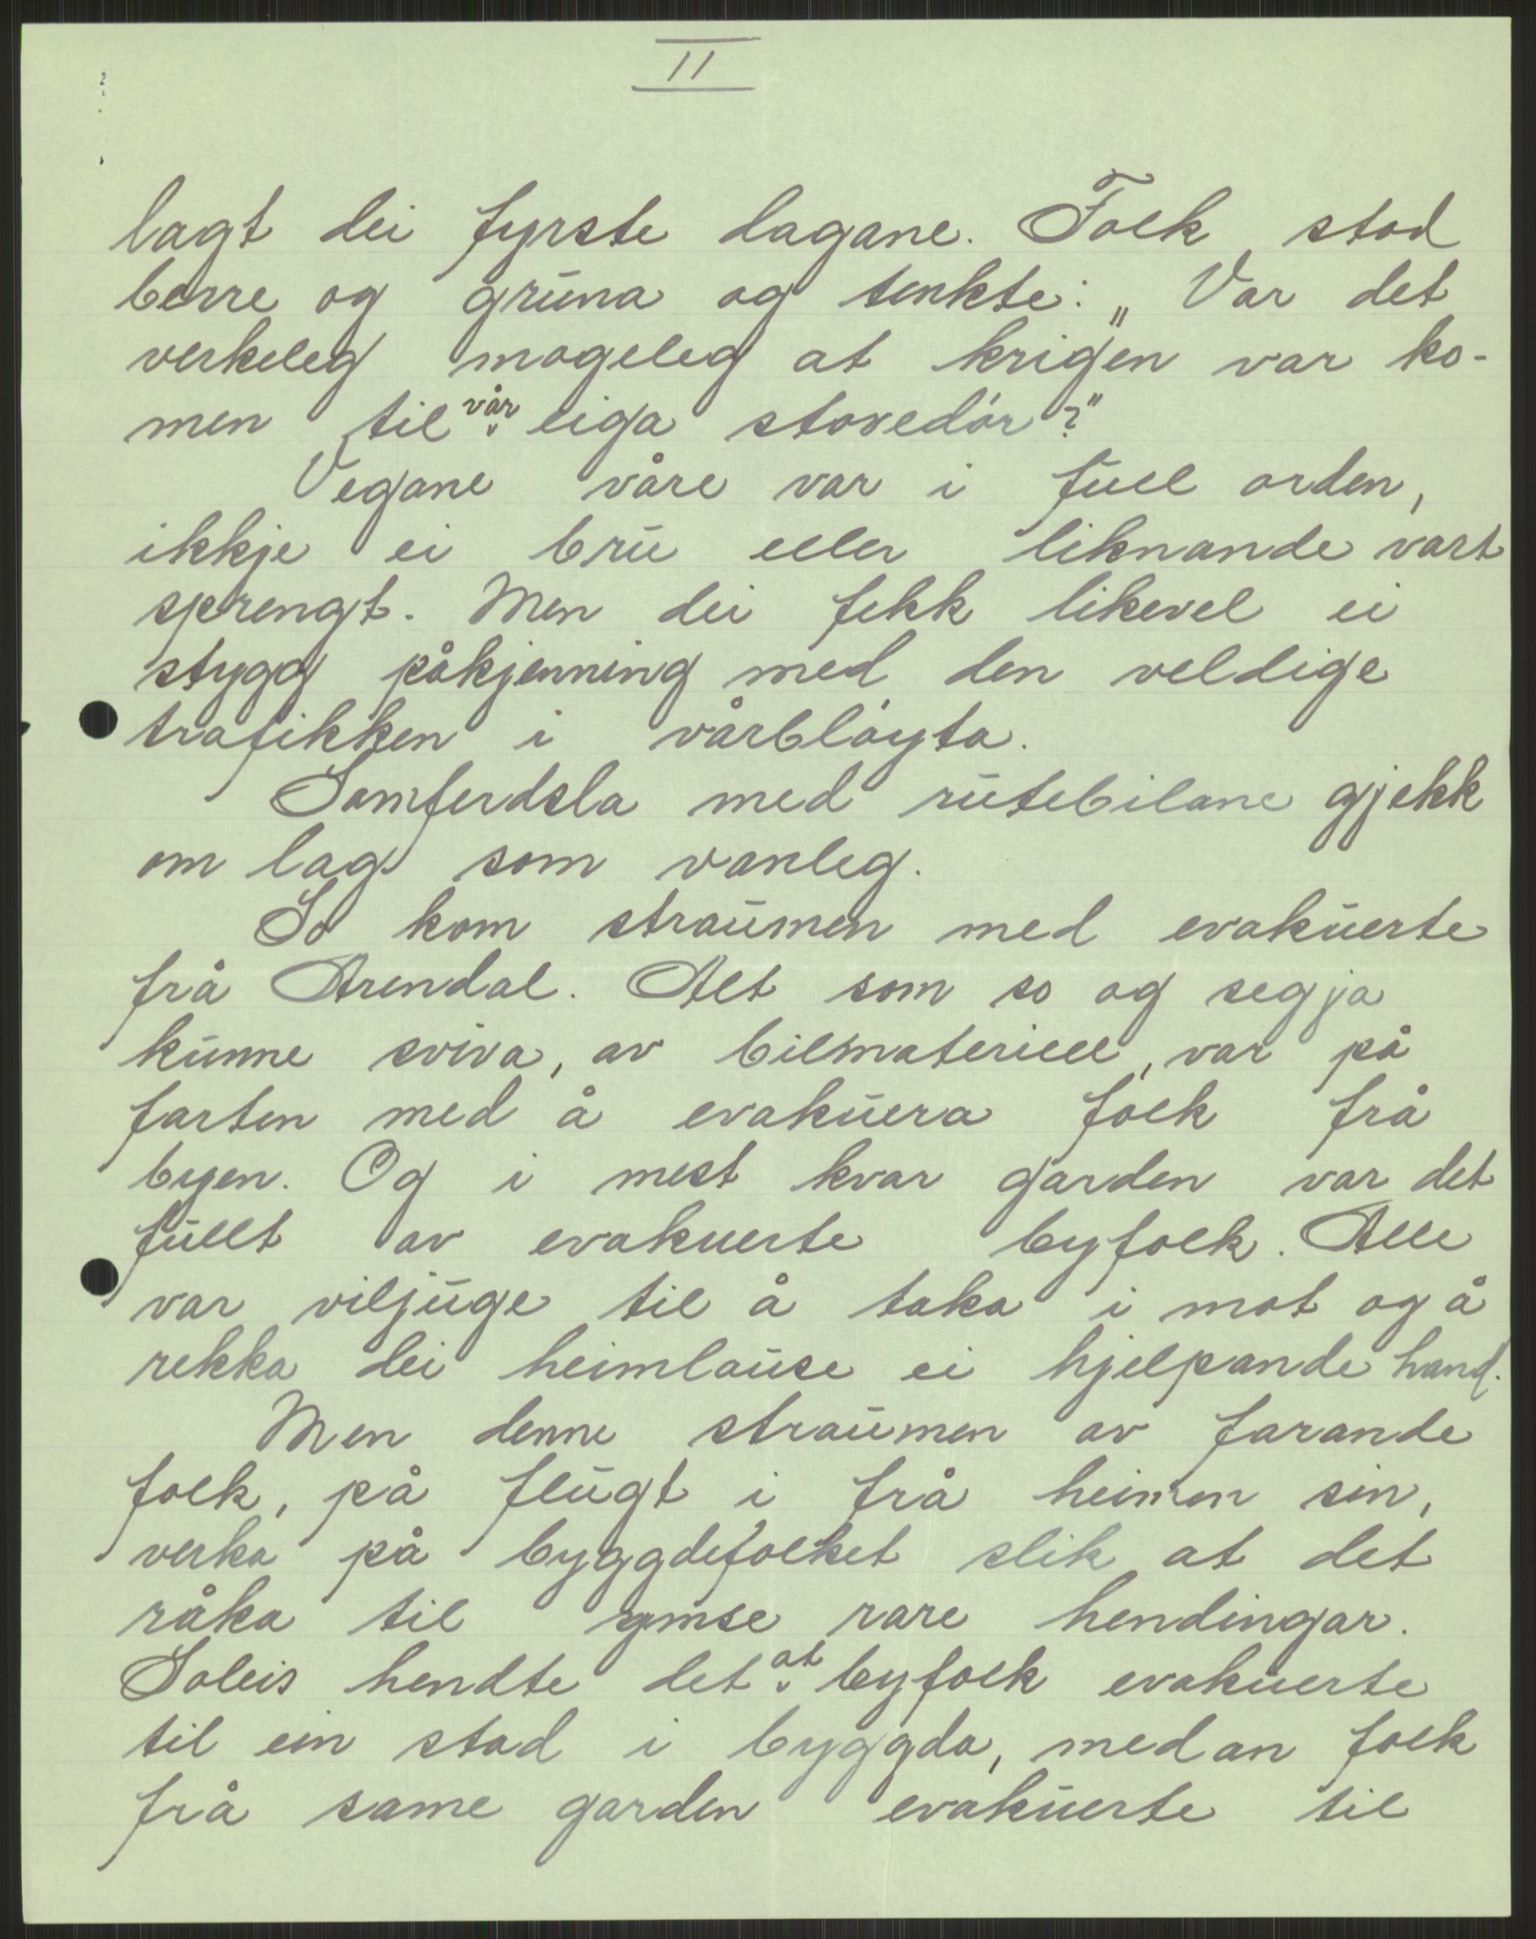 II
lagt dei fyrste dagane. Folk stod
berre og gruna og tenkte: „Var det
verkeleg mogeleg at krigen var ko-
men til vår eiga stovedør?"
Vegane våre var i full orden,
ikkje ei bru eller liknande vart
sprengt. Men dei fekk likevel ei
stygg påkjenning med den veldige
trafikken i vårbløyta.
Samferdsla med rutebilane gjekk
om lag som vanleg.
So kom straumen med evakuerte
frå Arendal. Alt som so og segja
kunne sviva, av bilmateriell, var på
farten med å evakuera folk frå
byen. Og i mest kvar garden var det
fullt av evakuerte byfolk. Alle
var viljuge til å taka i mot og å
rekka dei heimlause ei hjelpande hand.
Men denne straumen av farande
folk, på flugt i frå heimen sin,
verka på byggdefolket slik at det
råka til ymse rare hendingar.
Soleis hendte det at byfolk evakuerte
til ein stad i byggda, medan folk
frå same garden evakuerte til